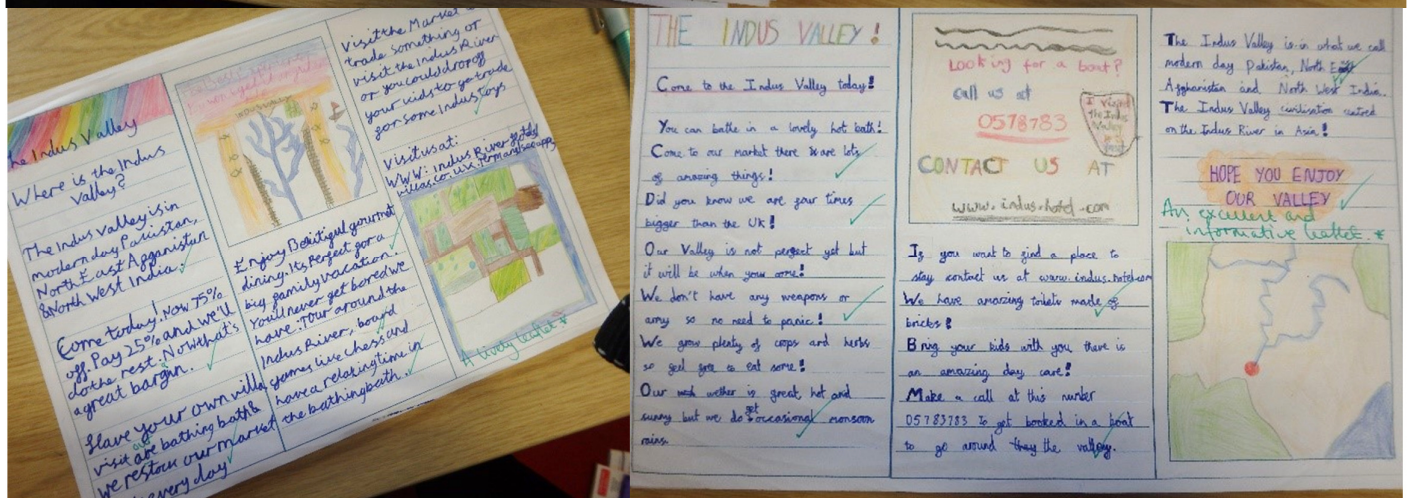 The Indus Valley
Where is the Indus
Valley?
The Indus Valley is in
modern day Pakistan,
North East Afganistan
& North West India.
Come today! Now 75%
off. Pay 25% and we'll
do the rest. Now that's
a great bargin.
Have your own villa
visit are bathing baths
we restock our market
every day
Enjoy Beautiful gourmet
dining. Its perfect for a
big family vacation.
You'll never get bored we
have: Tour around the
Indus River, board
games live chess and
have a relating time in
the bathing bath.
Visit the Market
trade something or
visit the Indus River
or you could drop off
your kids to go trade
for some Indus toys
Visit us at:
WWW: Indus River Hotel/
A lively leaflet
THE INDUS VALLEY!
Come to the Indus Valley today!
You can bathe in a lovely hot bath!
Come to our market there are lots
of amazing things!
Did you know we are four times
bigger than the UK!
Our Valley is not perfect yet but
it will be when you come!
We don't have any weapons or
army so no need to panic!
We grow plenty of crops and herbs
so feel free to eat some!
Our wether is great, hot and
sunny but we do get occasional monsoon
rains.
Looking for a boat?
call us at
0578783
I visited
the Indus
Valley
CONTACT US AT
www.indus.hotel.com
If you want to find a place to
stay contact us at www.indus.hotel.com
We have amazing toilets made of
bricks!
Bring your kids with you there is
an amazing day care!
Make a call at this number
05783783 to get booked in a boat
to go around the valley.
The Indus Valley is in what we call
modern day Pakistan, North East
Afghanistan and North West India.
The Indus Valley civilisation
on the Indus River in Asia!
HOPE YOU ENJOY
OUR VALLEY
An excellent and
informative leaflet.